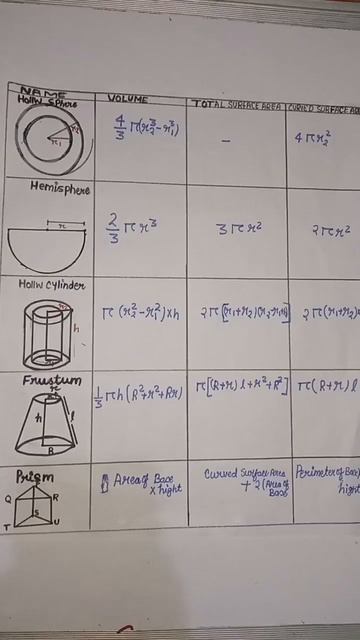 NAME VOLUME TOTAL SURFACE AREA CURVED SURFACE ARE
Hollw Sphere
4/3 π(r₂³-r₁³) – 4πr₂²
r₂
r₁
Hemisphere
r
2/3 πr³ 3πr² 2πr²
Hollw Cylinder
π(r₂²-r₁²)×h 2π[(r₁+r₂)(r₂-r₁+h)] 2π(r₁+r₂)
h
Frustum
r
1/3 πh(R²+r²+Rr) π[(R+r)l+r²+R²] π(R+r)l
h l
R
Prism
Area of Base
× hight
Curved Surface Area
+ 2(Area of
Base
Perimeter of Base)
hight
P
Q R
S
T U